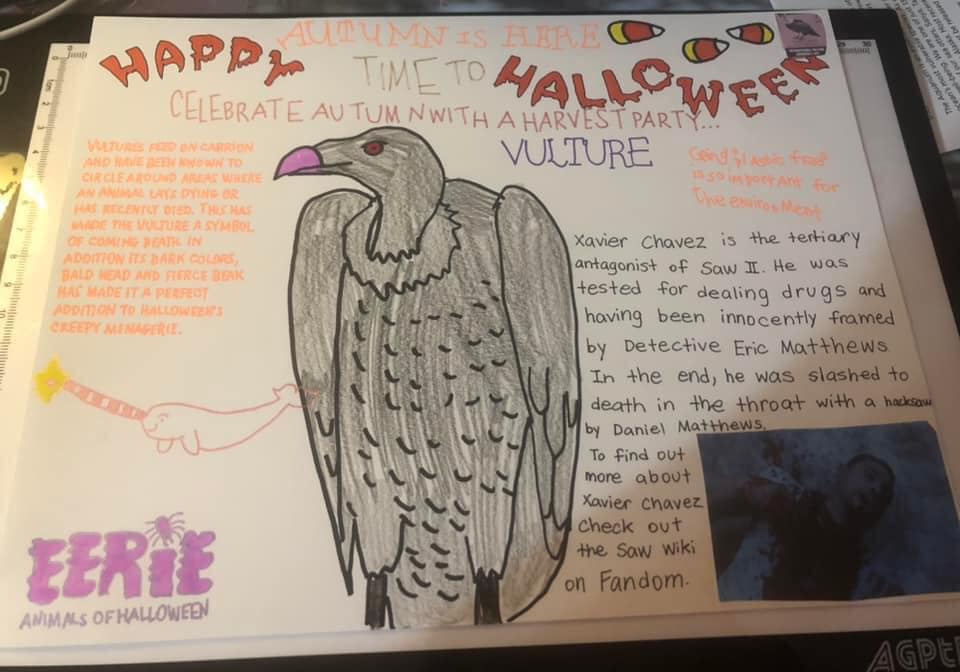 AUTUMN IS HERE
HAPPY
TIME TO
HALLOWEEN
CELEBRATE AUTUMN WITH A HARVEST PARTY...
VULTURE
VULTURES FEED ON CARRION
AND HAVE BEEN KNOWN TO
CIRCLE AROUND AREAS WHERE
AN ANIMAL LAYS DYING OR
HAS RECENTLY DIED. THIS HAS
MADE THE VULTURE A SYMBOL
OF COMING DEATH. IN
ADDITION ITS DARK COLORS,
BALD HEAD AND FIERCE BEAK
HAS MADE IT A PERFECT
ADDITION TO HALLOWEEN'S
CREEPY MENAGERIE.
Going plastic free
is so important for
the environment
Xavier Chavez is the tertiary
antagonist of Saw II. He was
tested for dealing drugs and
having been innocently framed
by Detective Eric Matthews.
In the end, he was slashed to
death in the throat with a hacksaw
by Daniel Matthews.
To find out
more about
Xavier Chavez
check out
the Saw Wiki
on Fandom.
EERIE
ANIMALS OF HALLOWEEN